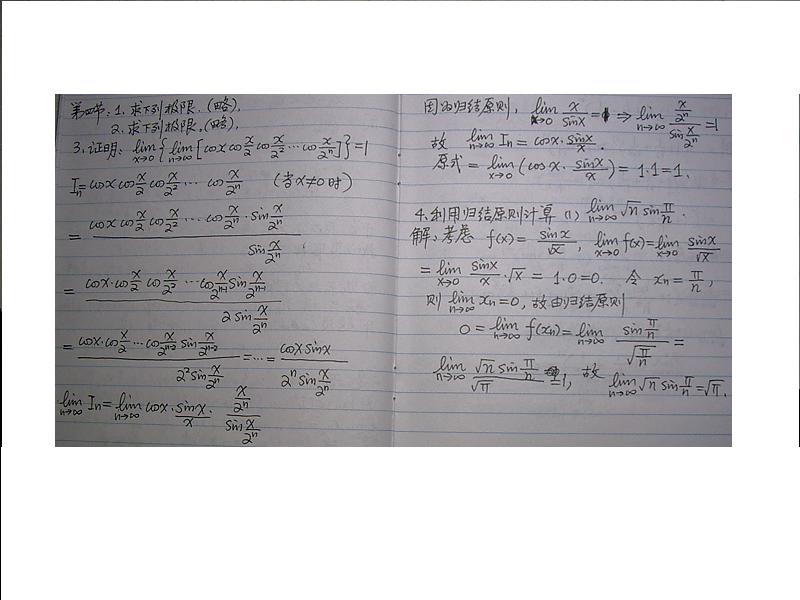 第四节:1.求下列极限.(略).
2.求下列极限.(略).
3.证明: lim_{x→0} { lim_{n→∞} [cosx cos x/2 cos x/2² ··· cos x/2ⁿ] } = 1
Iₙ = cosx cos x/2 cos x/2² ··· cos x/2ⁿ (当x≠0时)
= (cosx cos x/2 cos x/2² ··· cos x/2ⁿ · sin x/2ⁿ) / (sin x/2ⁿ)
= (cosx·cos x/2 cos x/2² ··· cos x/2ⁿ⁻¹ sin x/2ⁿ⁻¹) / (2 sin x/2ⁿ)
= (cosx·cos x/2 ··· cos x/2ⁿ⁻² sin x/2ⁿ⁻²) / (2² sin x/2ⁿ) = ··· = (cosx·sinx) / (2ⁿ sin x/2ⁿ)
lim_{n→∞} Iₙ = lim_{n→∞} cosx · sinx/x · (x/2ⁿ) / (sin x/2ⁿ)
因为归结原则, lim_{x→0} x/sinx = 1 ⇒ lim_{n→∞} (x/2ⁿ) / (sin x/2ⁿ) = 1
故 lim_{n→∞} Iₙ = cosx · sinx/x .
原式 = lim_{x→0} (cosx · sinx/x) = 1·1 = 1.
4.利用归结原则计算 (1) lim_{n→∞} √n sin π/n .
解:考虑 f(x) = sinx/√x , lim_{x→0} f(x) = lim_{x→0} sinx/√x
= lim_{x→0} sinx/x · √x = 1·0 = 0. 令 xₙ = π/n ,
则 lim_{n→∞} xₙ = 0, 故由归结原则
0 = lim_{n→∞} f(xₙ) = lim_{n→∞} (sin π/n) / √(π/n) =
lim_{n→∞} (√n sin π/n) / √π = 1, 故 lim_{n→∞} √n sin π/n = √π .